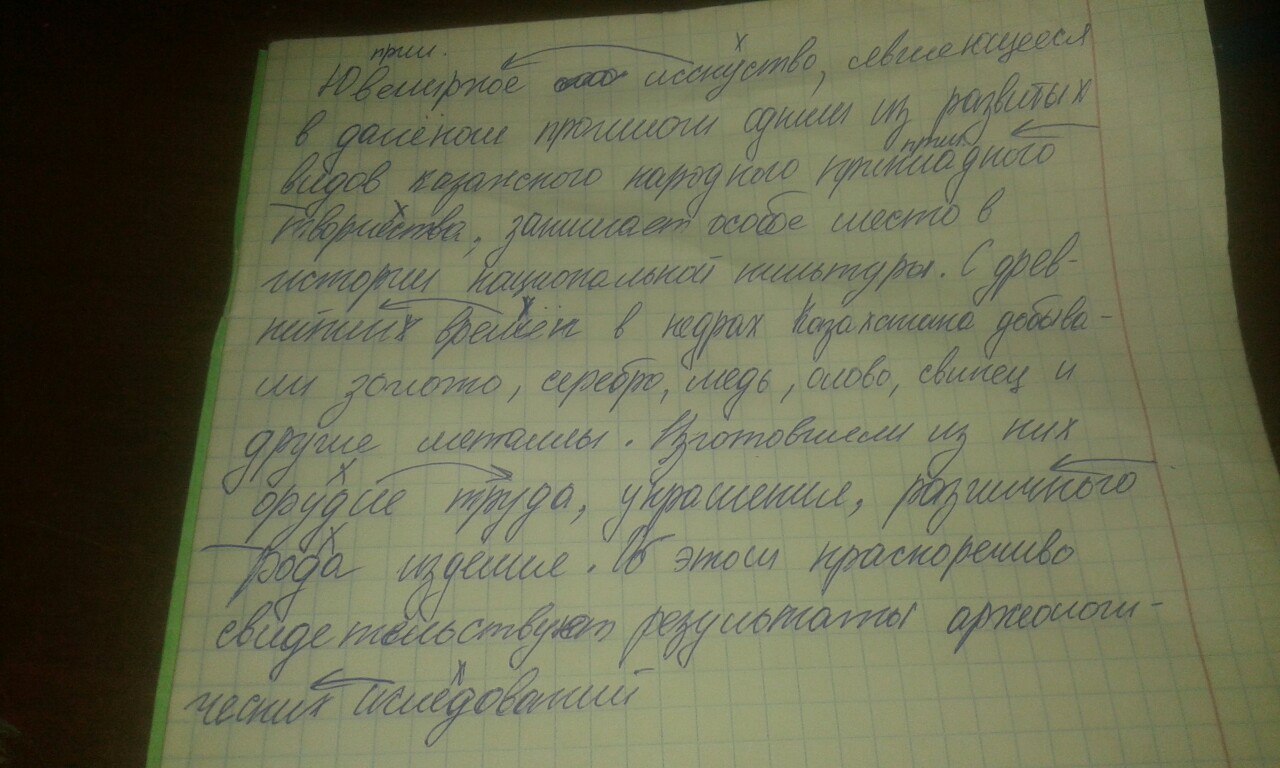 прил.
Ювелирное исскуство, являющееся
в далёком прошлом одним из развитых
прил
видов казахского народного прикладного
творчества, занимает особое место в
истории национальной культуры. С древ-
нейших времён в недрах Казахстана добыва-
ли золото, серебро, медь, олово, свинец и
другие металлы. Изготовляли из них
орудие труда, украшения, различного
рода изделия. Об этом красноречиво
свидетельствуют результаты археологи-
ческих иследований